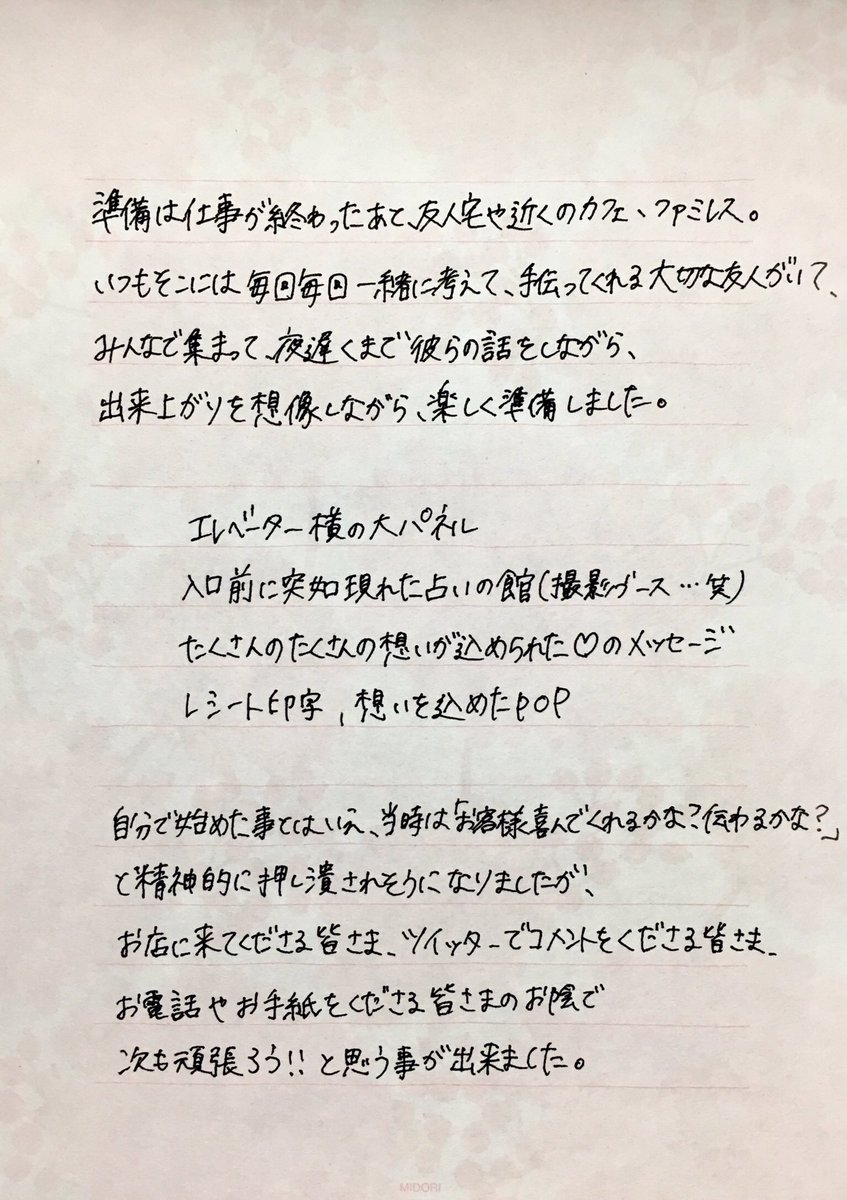 準備は仕事が終わったあと、友人宅や近くのカフェ、ファミレス。
いつもそこには毎回毎回一緒に考えて、手伝ってくれる大切な友人がいて、
みんなで集まって、夜遅くまで彼らの話をしながら、
出来上がりを想像しながら、楽しく準備しました。
エレベーター横の大パネル
入口前に突如現れた占いの館(撮影ブース…笑)
たくさんのたくさんの想いが込められた♡のメッセージ
レシート印字、想いを込めたPOP
自分で始めた事とはいえ、当時は「お客様喜んでくれるかな?伝わるかな?」
と精神的に押し潰されそうになりましたが、
お店に来てくださる皆さま、ツイッターでコメントをくださる皆さま、
お電話やお手紙をくださる皆さまのお陰で
次も頑張ろう!!と思う事が出来ました。
MIDORI